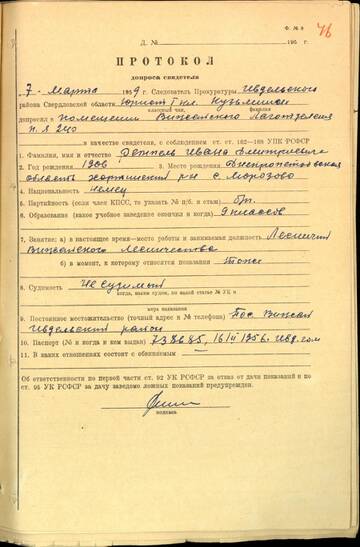 Ф. № 8
46
Д. № 195 г.
ПРОТОКОЛ
допроса свидетеля
7 Марта 1959 г. Следователь Прокуратуры Ивдельского
района Свердловской области Юрист I кл. Кузьминых
классный чин, фамилия
допросил в помещении Вижайского Лаготделения
п. Я 240
в качестве свидетеля, с соблюдением ст. ст. 162—168 УПК РСФСР
1. Фамилия, имя и отчество Ивана Дмитриевича
2. Год рождения 1906 3. Место рождения Днепропетровская
область р-н с. Морозово
4. Национальность немец
5. Партийность (если член КПСС, то указать № п/б. и стаж) бп.
6. Образование (какое учебное заведение окончил и когда) 9 классов
7. Занятие: а) в настоящее время—место работы и занимаемая должность Лесничий
Вижайского Лесничества
б) в момент, к которому относятся показания тоже
8. Судимость Не судимый
когда, каким судом, по какой статье № УК и
мера наказания
9. Постоянное местожительство (точный адрес и № телефона) Пос. Вижай
Ивдельский район
10. Паспорт (№ и когда и кем выдан) 738685, 16/II 1956. Ивд. гом
11. В каких отношениях состоит с обвиняемым —
Об ответственности по первой части ст. 92 УК РСФСР за отказ от дачи показаний и по
ст. 95 УК РСФСР за дачу заведомо ложных показаний предупрежден.
подпись